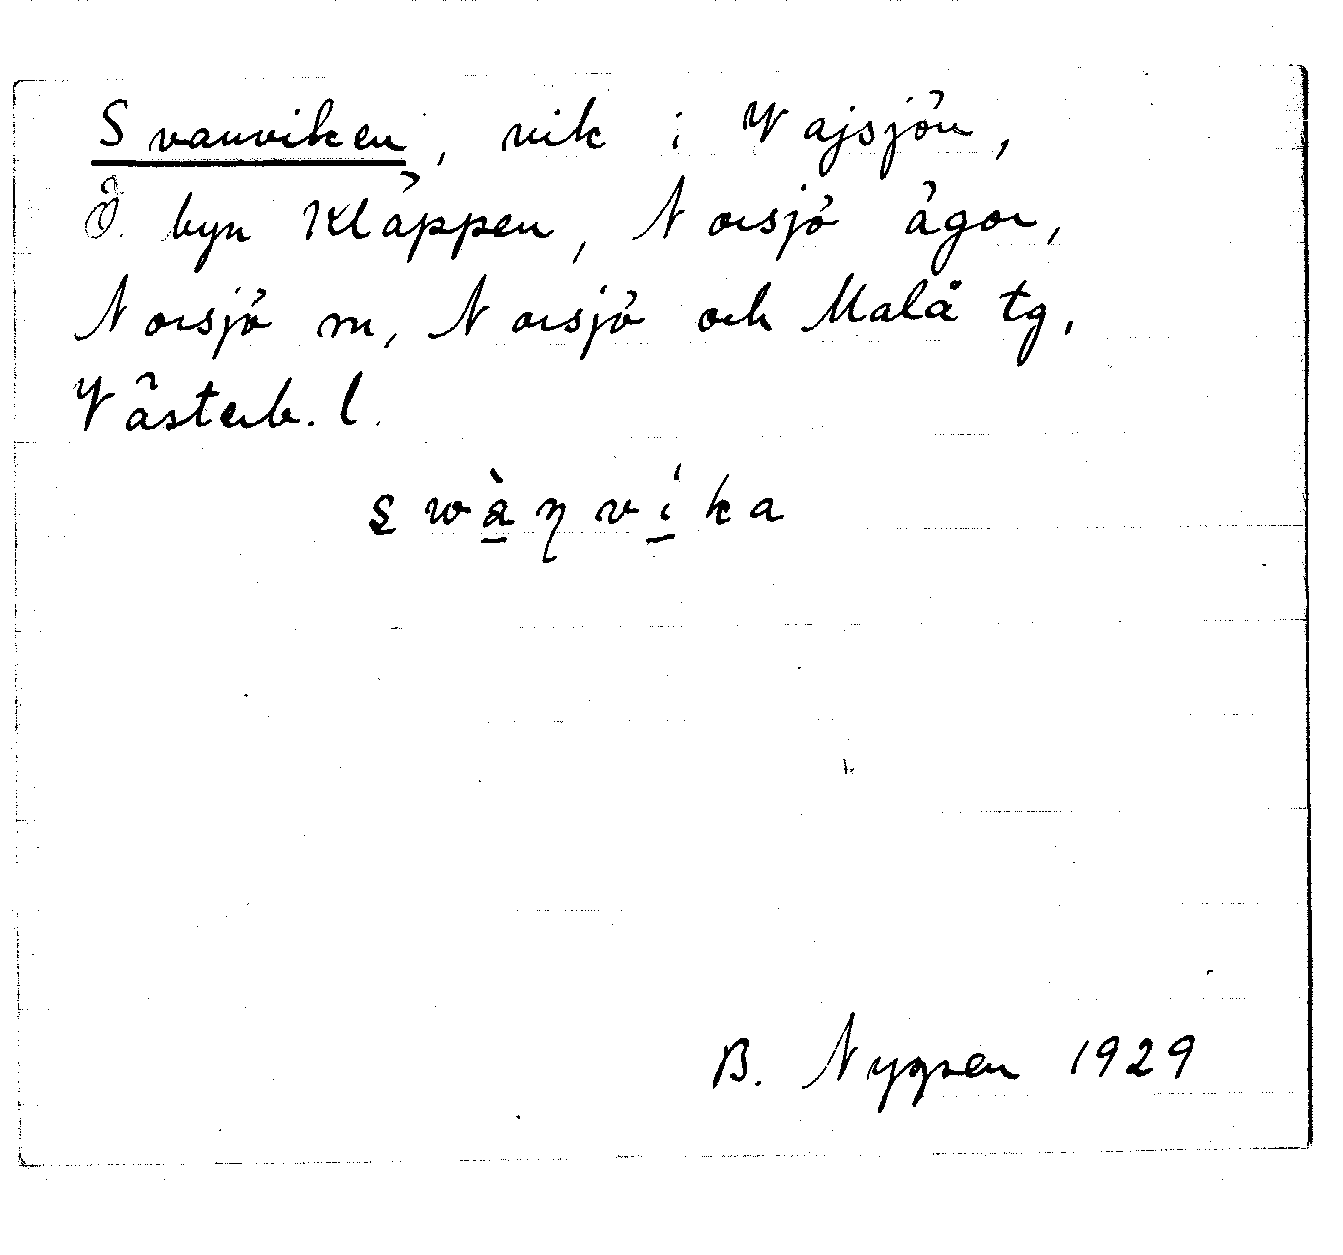 Svanviken, vik i Vajsjön,
Ö. byn Kläppen, Norsjö ägor,
Norsjö sn, Norsjö och Malå tg,
Västerb. l.
swànvíka
B. Nygren 1929